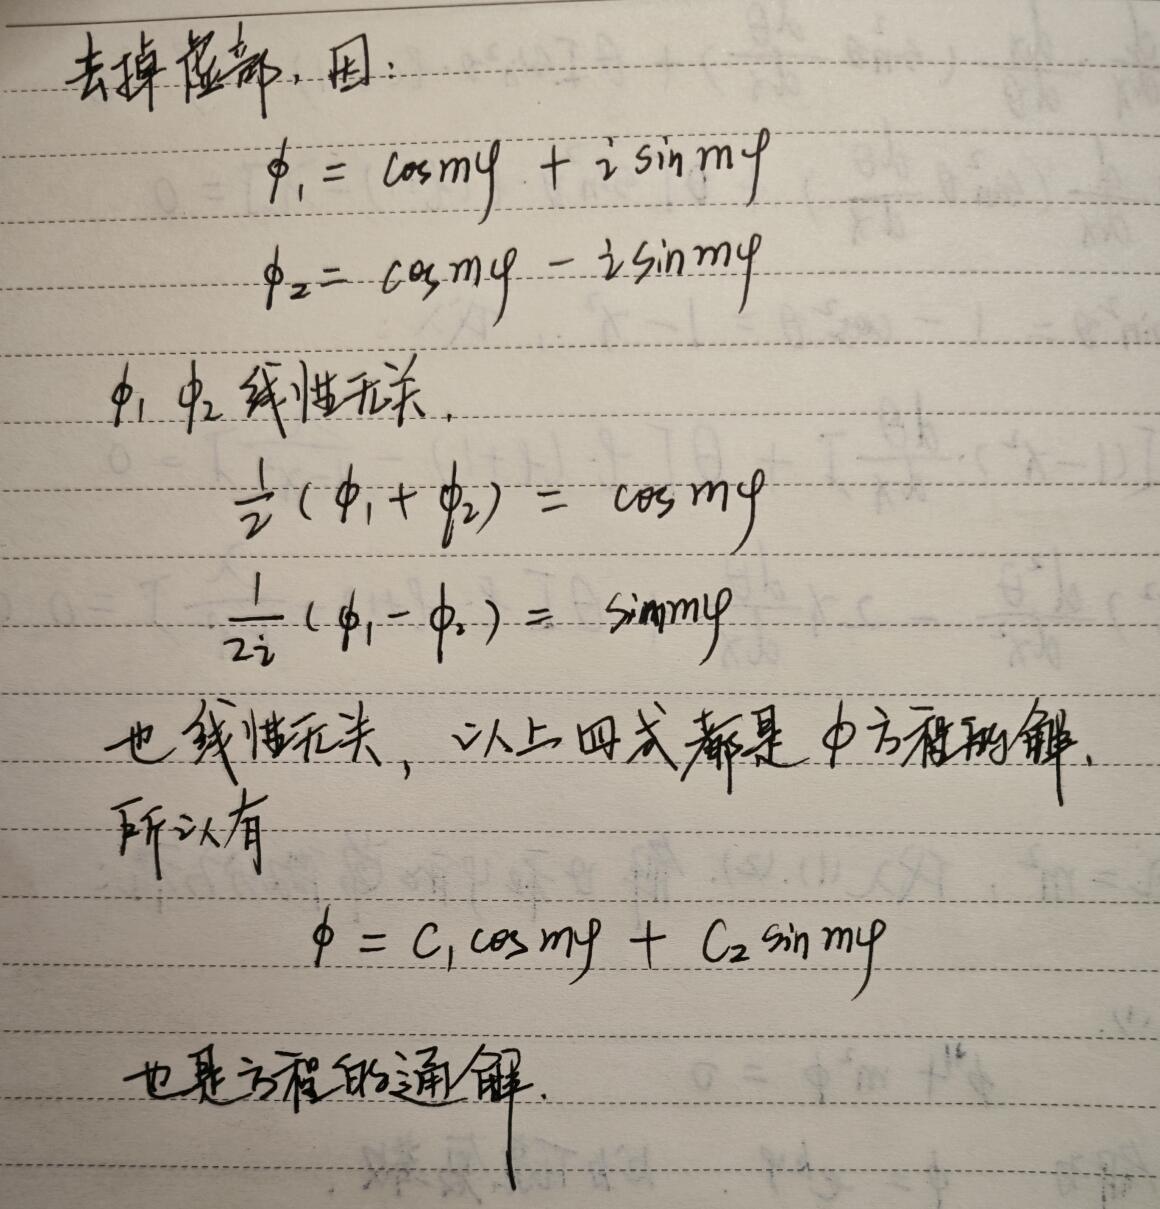 去掉虚部，因：
ϕ₁ = cosmφ + i sinmφ
ϕ₂ = cosmφ - i sinmφ
ϕ₁ ϕ₂ 线性无关.
1/2 (ϕ₁ + ϕ₂) = cosmφ
1/2i (ϕ₁ - ϕ₂) = sinmφ
也线性无关, 以上四式都是ϕ方程的解.
所以有
ϕ = C₁cosmφ + C₂sinmφ
也是方程的通解.